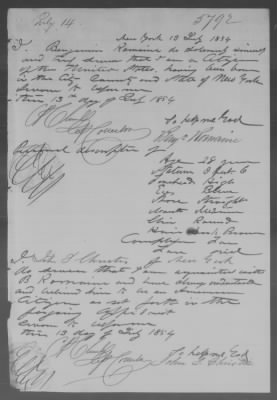 July 14.
5792
New York 13 July 1854
I. Benjamin Romaine do solemnly
and that I am a citizen
of the United States, having been born
in the City County and State of New York
Sworn to before me
this 13th day of July 1854
So help me God
Benj Romaine
Personal description of
Age 28 years
Stature 5 feet 6
Forehead High
Eyes Blue
Nose Straight
Mouth Medium
Chin Round
Hair Dark Brown
Complexion
Face Oval
I. John S of New York
do swear that I am acquainted with
B Romaine and have always understood
and him to be an American
Citizen as set forth in the
foregoing
Sworn to before me
this 13 day of July 1854
So help me God
John S